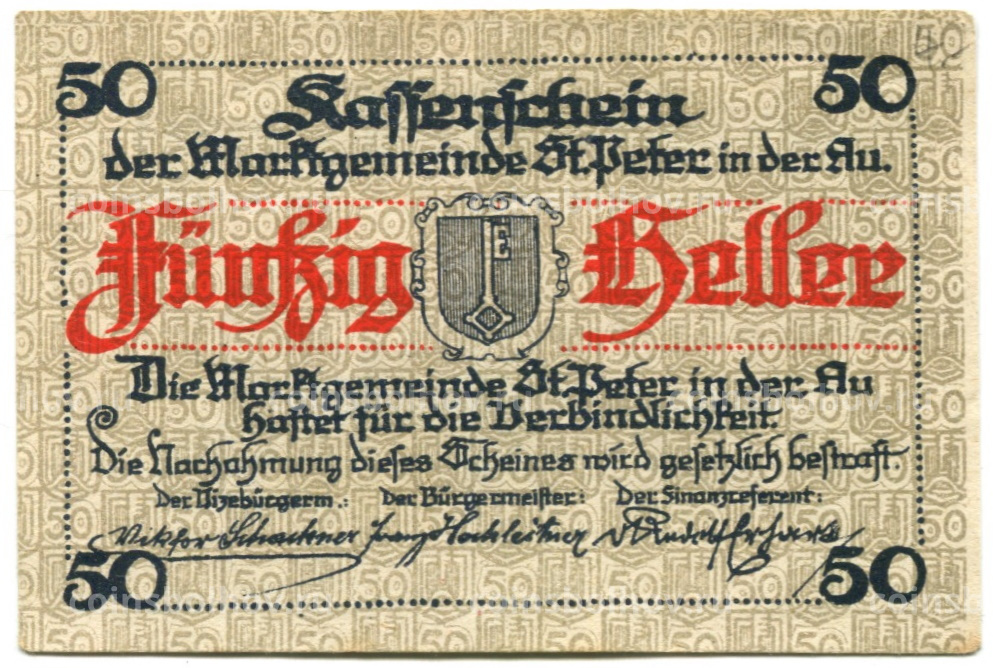 50 50
Kassenschein
der Marktgemeinde St. Peter in der Au.
Fünfzig Heller
Die Marktgemeinde St. Peter in der Au
haftet für die Verbindlichkeit.
Die Nachahmung dieses Scheines wird gesetzlich bestraft.
Der Vizebürgerm.: Der Bürgermeister: Der Finanzreferent:
Viktor Franz Hochleitner Rudolf
50 50